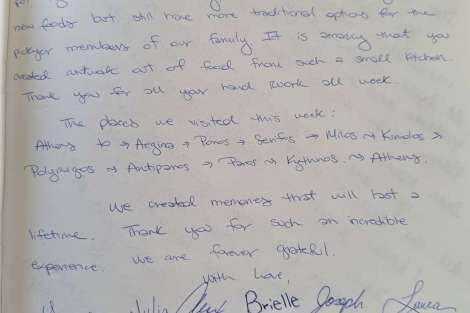 new foods but still have more traditional options for the
pickyer members of our family. It is amazing that you
created artwork out of food from such a small kitchen.
Thank you for all your hard work all week.
The places we visited this week:
Athens to → Aegina → Poros → Serifos → Milos → Kimolos →
Polyaigos → Antiparos → Paros → Kythnos → Athens.
We created memories that will last a
lifetime. Thank you for such an incredible
experience. We are forever grateful.
With love,
Julia Brielle Joseph Laura